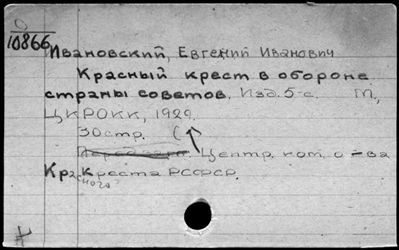 10866
Ивановский, Евгений Иванович
Красный крест в обороне
страны советов. Изд. 5-е. М,
ЦКРОКК, 1929.
30 стр. (
Центр. ком. о-ва
Красного Креста РСФСР.